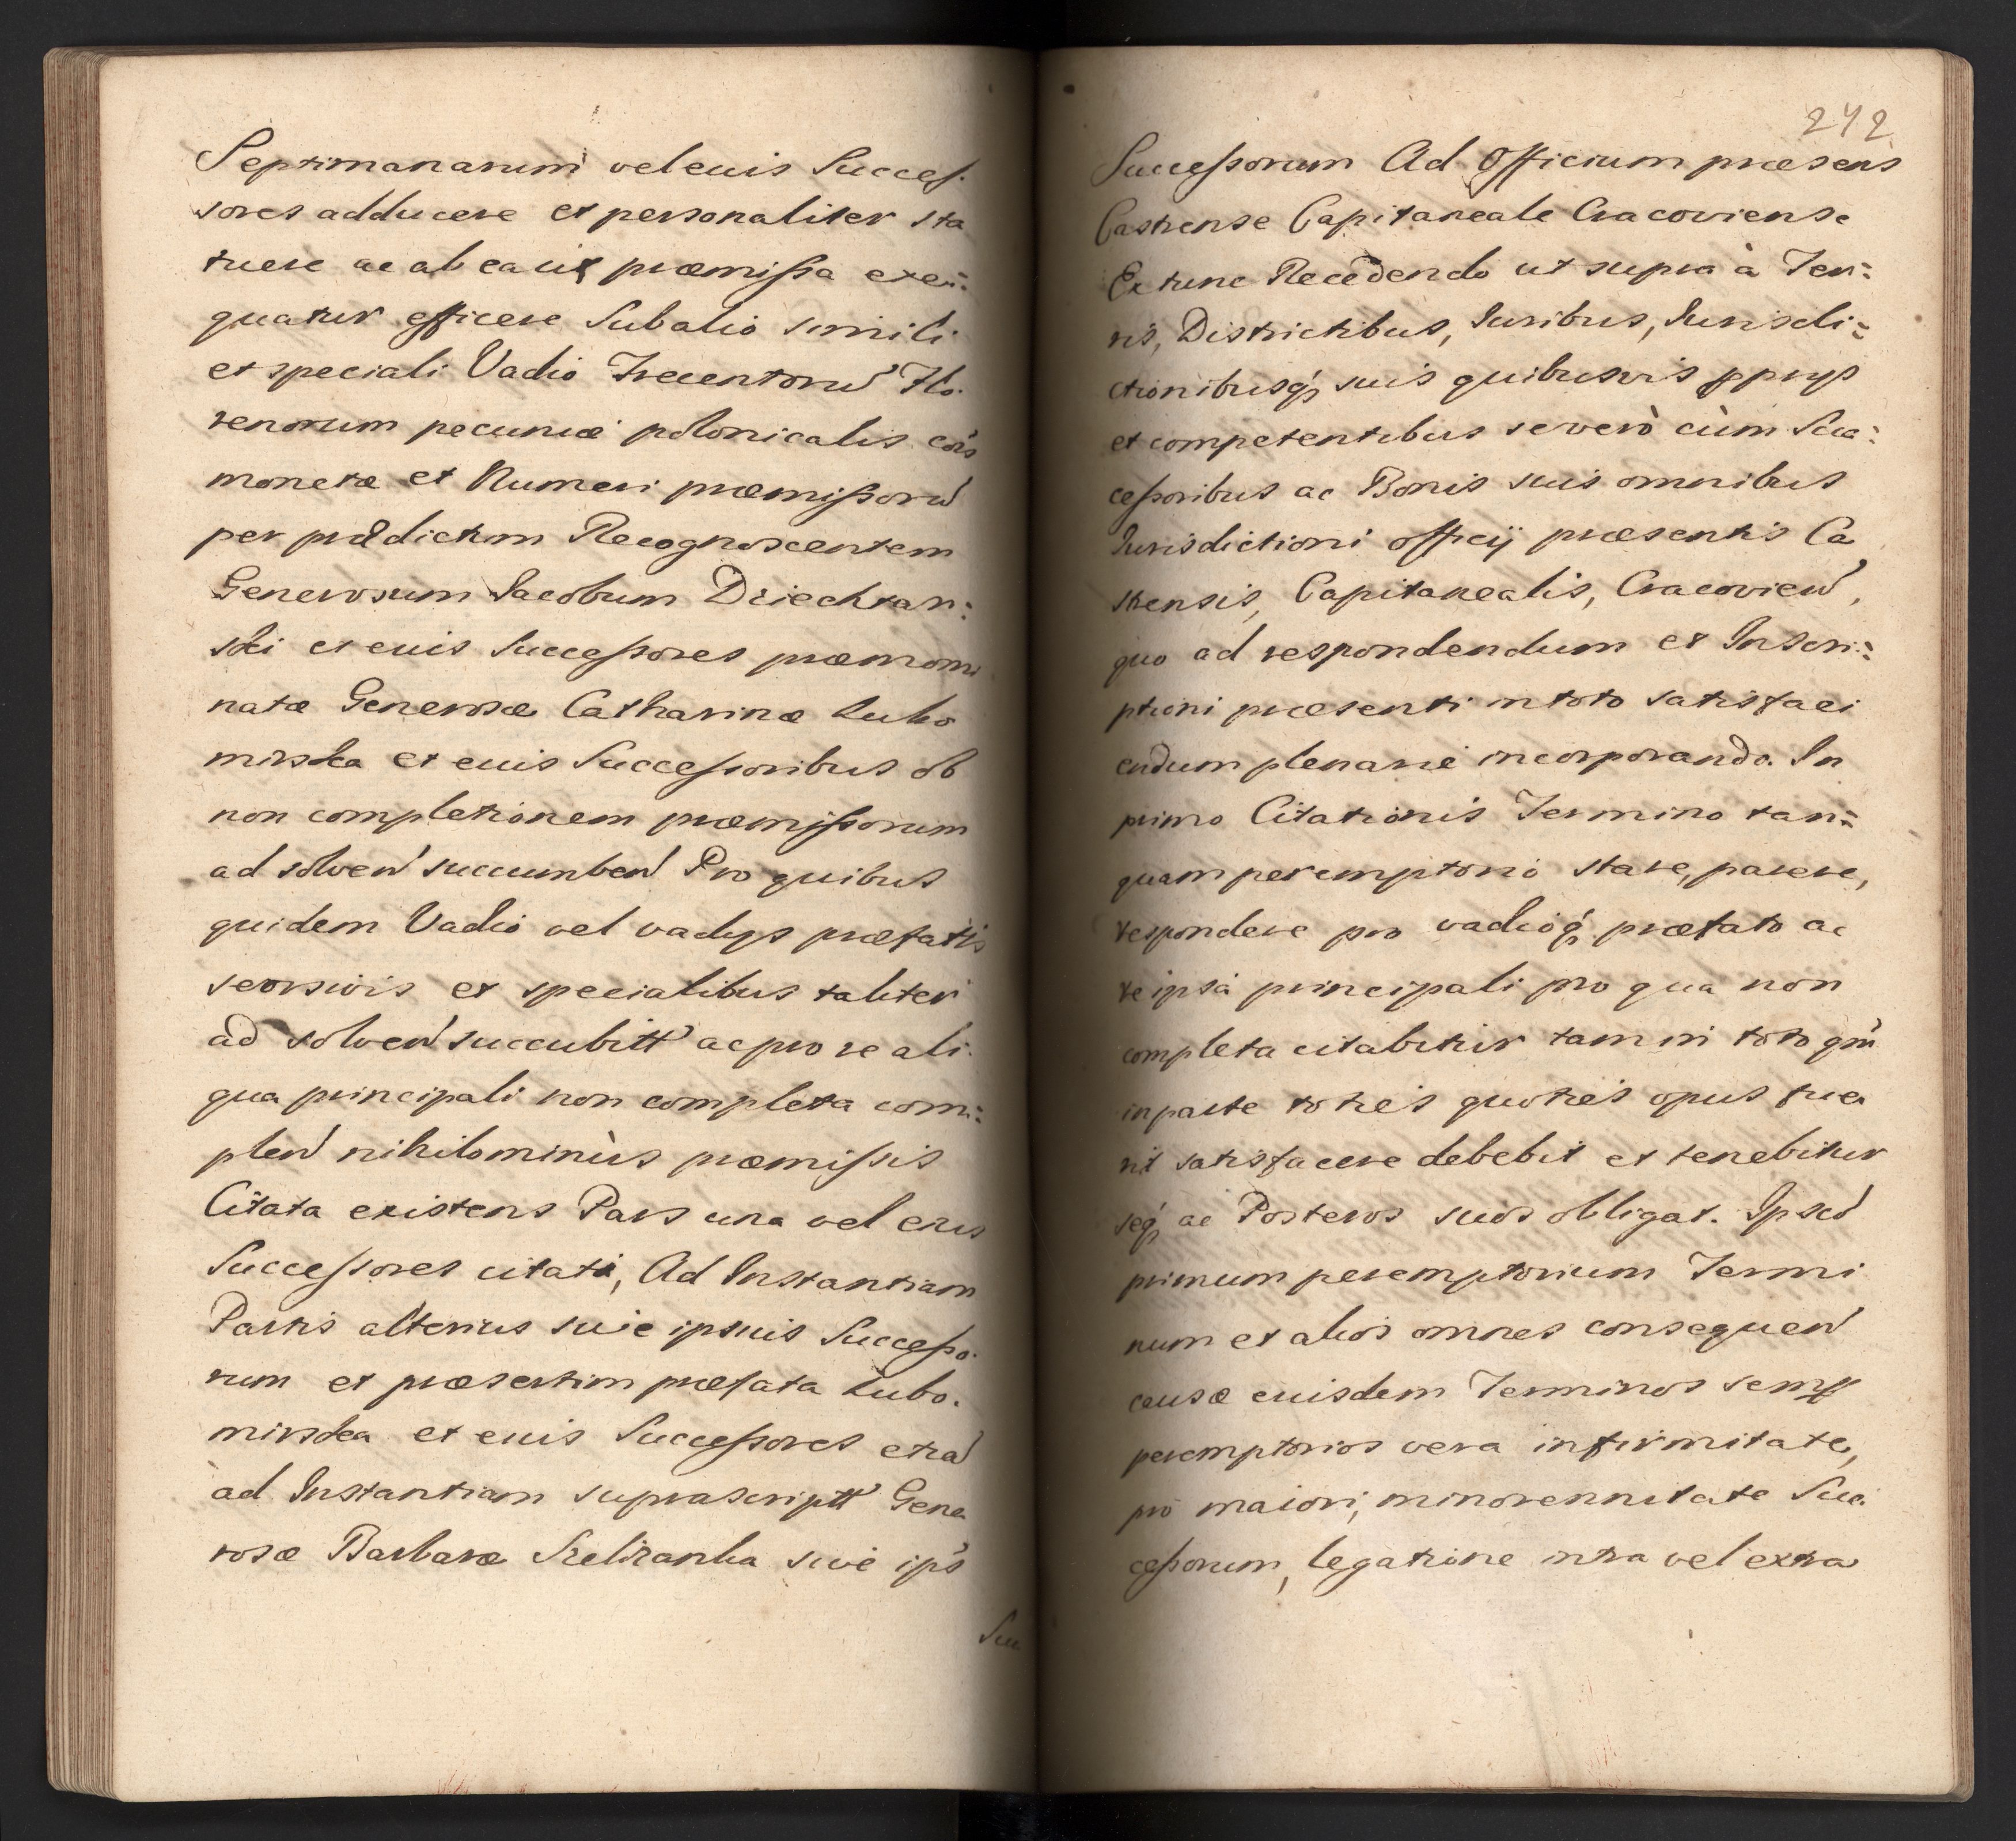 Septimanarum vel euis Succes-
sores adducere et personaliter sta
tuere ac ab ea uix præmissa exe-
quatur efficere Sub alio simili
et speciali Vadio Trecentorũ Flo-
renorum pecuniæ polonicalis cõis
monetæ et Numeri præmissorũ
per prædictum Recognoscentem
Generosum Jacobum Dziechtar-
ski et euis Successores prænomi
natæ Generosæ Catharinæ Lubo
mirska et euis Successoribus ob
non completionem præmissorum
ad solven succumben Pro quibus
quidem Vadio vel vadijs præfatis
seorsivis et specialibus taliter
ad solven succubitt ac pro re ali-
qua principali non completa com-
plen nihilominùs præmissis
Citata existens Pars una vel eius
Successores citati, Ad Instantiam
Partis alterius siue ipsuis Successo-
rum et præsertim præfata Lubo-
mirska et euis Successores etiã
ad Instantiam suprascriptt Gene
rosæ Barbaræ Szelizanka siue ip̃s
Suc
242
Successorum Ad Officium præsens
Castrense Capitaneale Cracoviense
Ex tunc Recedendo ut supra à Ter-
ris, Districtibus, Juribus, Jurisdi-
ctionibusq, suis quibusvis pprijs
et competentibus se verò cùm Suc-
cessoribus ac Bonis suis omnibus
Jurisdictioni officij præsentis Ca
strensis, Capitanealis, Cracovien,
quo ad respondendum et Inscri-
ptioni præsenti in toto satisfaci
endum plenarie incorporando. In
primo Citationis Termino tan-
quam peremptorio stare, parere,
respondere pro vadioq, præfato ac
re ipsa principali pro qua non
completa citabitur tam in toto qm̃
in parte toties quoties opus fue
rit satisfacere debebit et tenebitur
seq, ac Posteros suos obligat. Ipsũ
primum peremptorium Termi
num et alios omnes consequen
causæ euisdem Terminos semp
peremptorios vera infirmitate,
pro maiori, minorennitate Suc-
cessorum, legatione intra vel extra